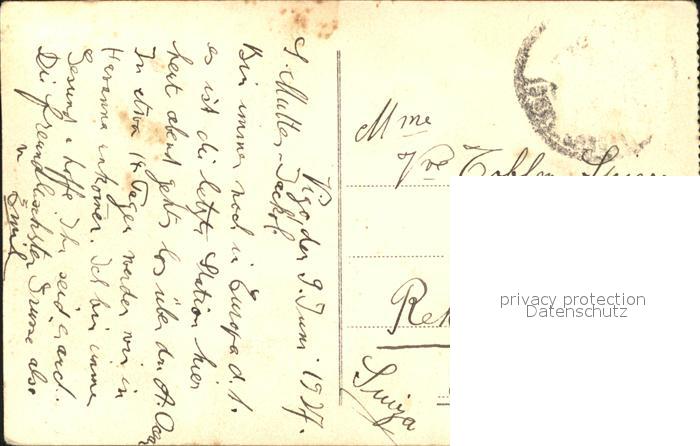 Vigo, den 9. Juni 1927.
L. Mutter & Jackob.
Bin immer noch in Europa d. h.
es ist die letzte Station hier
heut abend gehts los über den A.
In etwa 14 Tagen werden wir in
Havanna ankomen. Ich bin immer
Gesund & hoffe Ihr seid es auch.
Die freundlichsten Grüsse also
v Emil
Mme
Vve Tobler
Suiza
privacy protection
Datenschutz